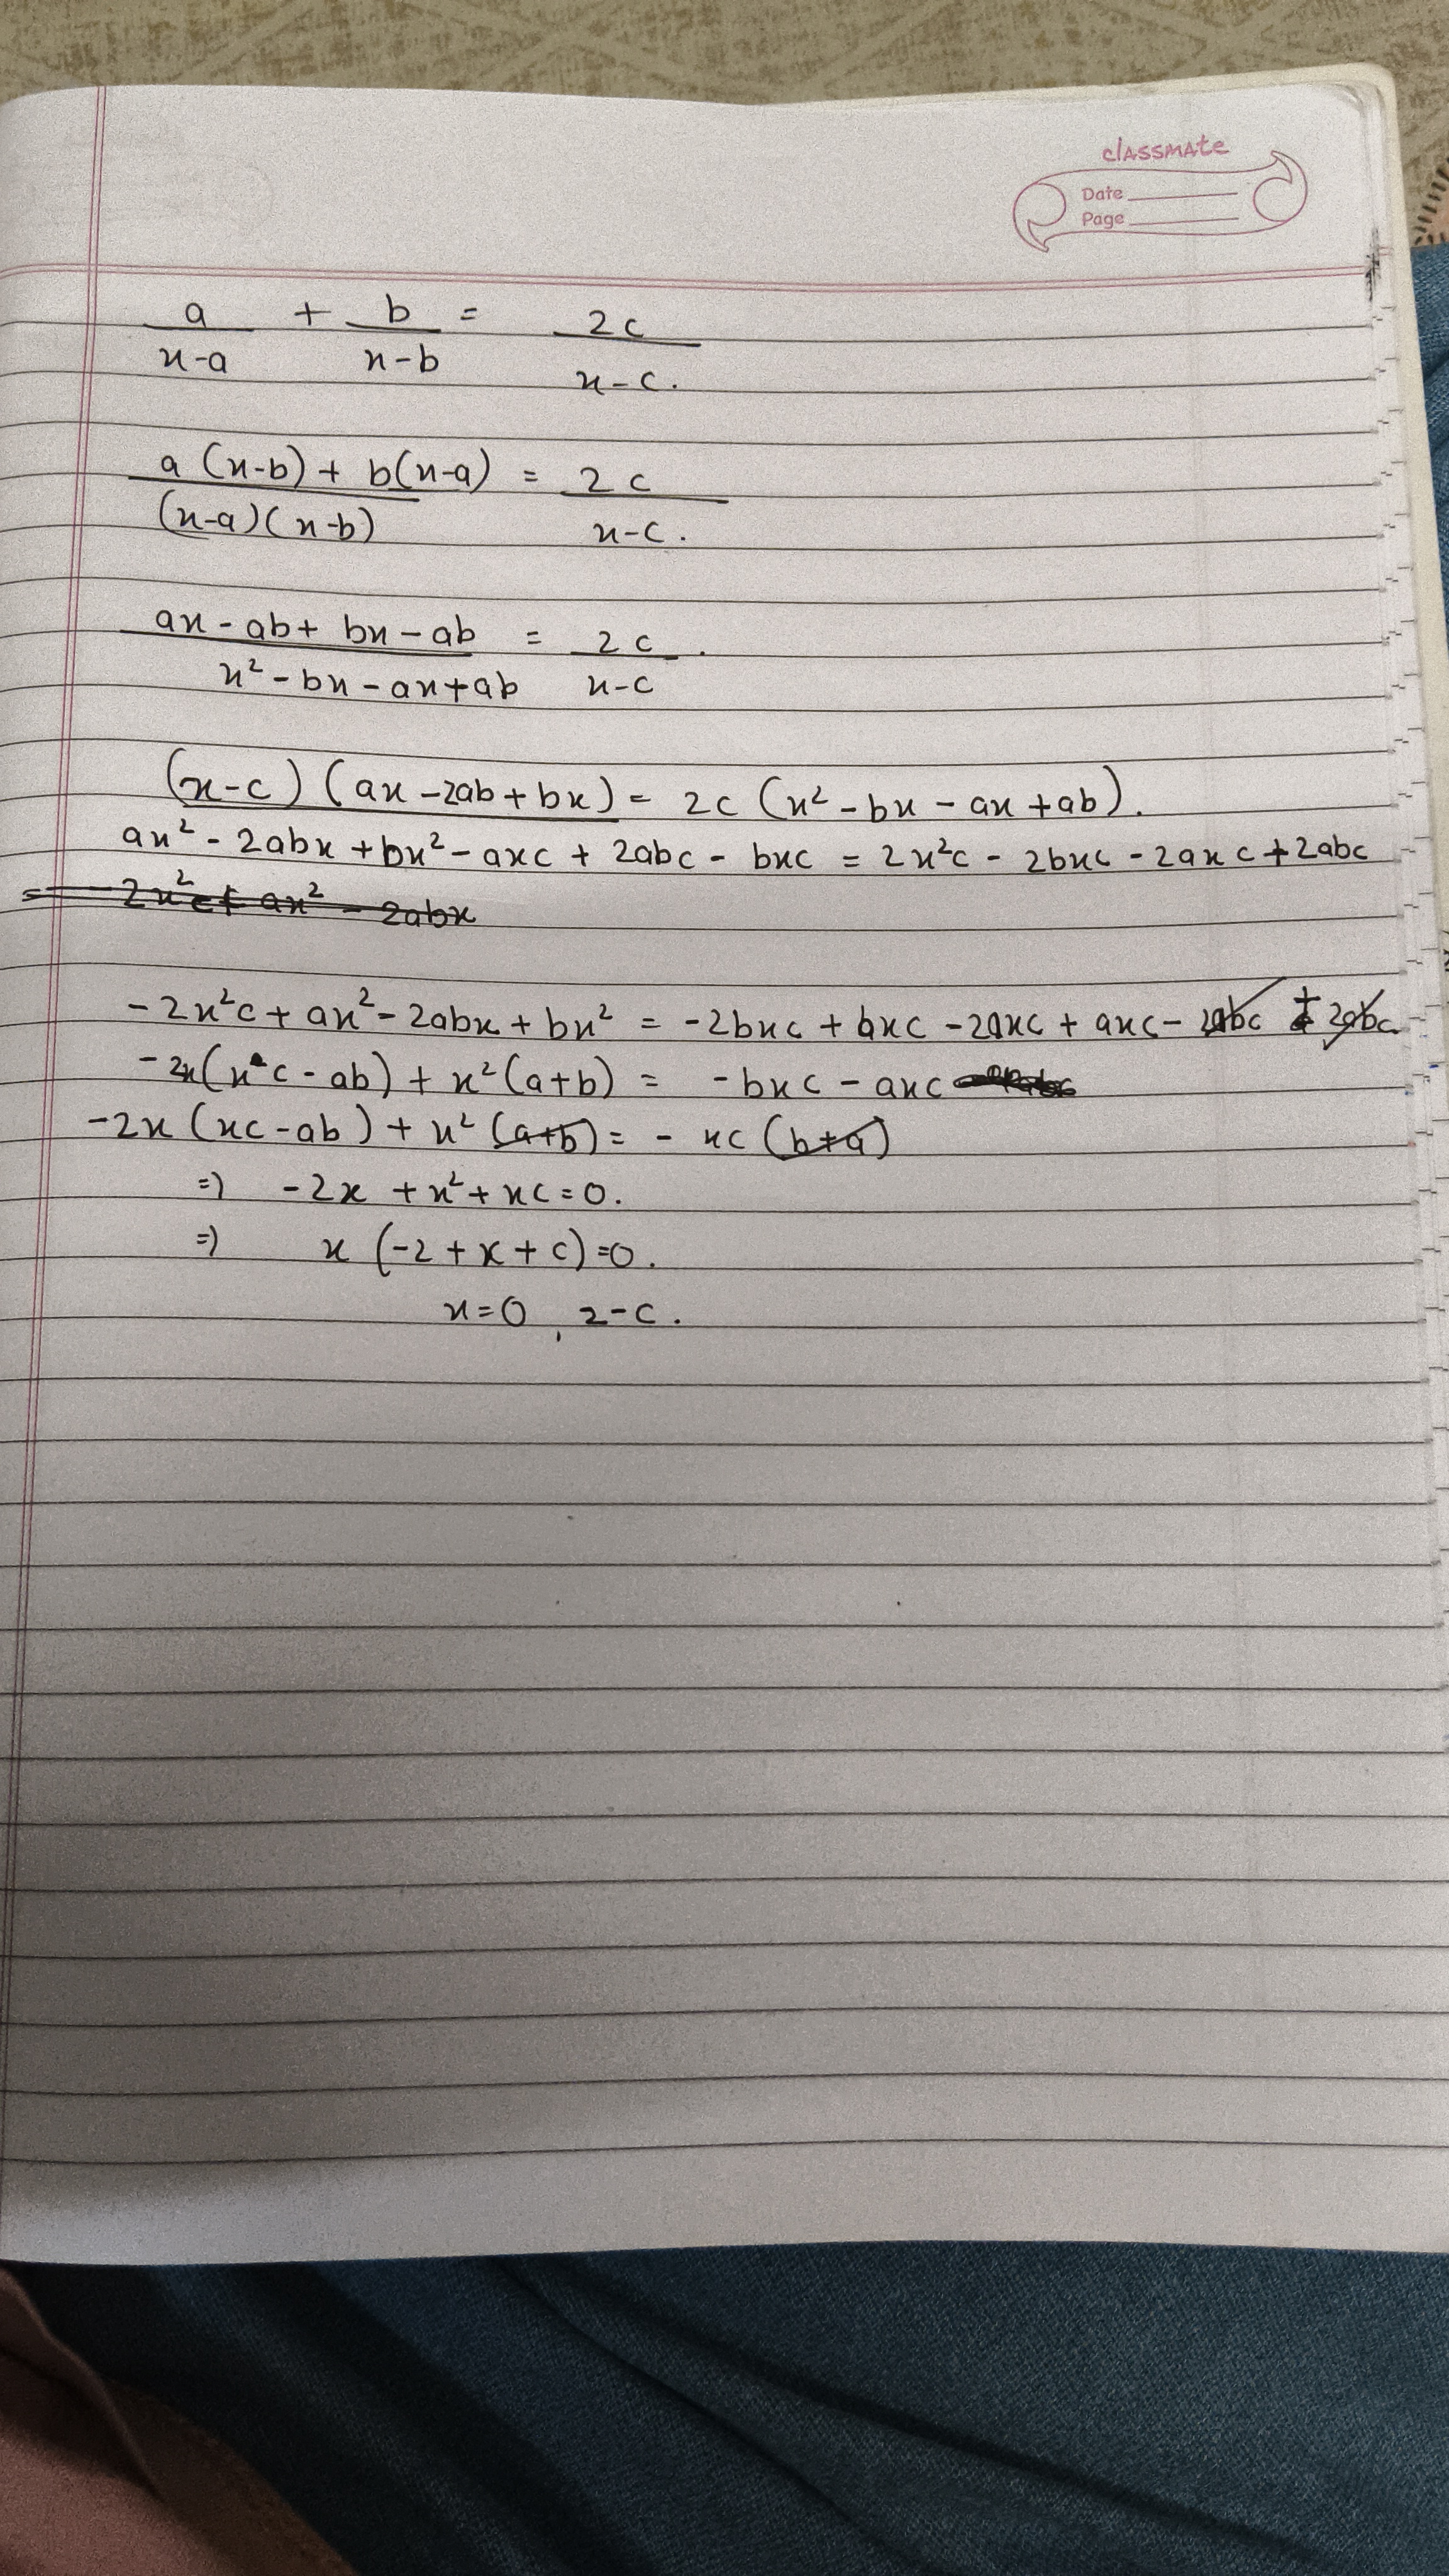 classmate
Date
Page
a/(x-a) + b/(x-b) = 2c/(x-c).
(a(x-b) + b(x-a))/((x-a)(x-b)) = 2c/(x-c).
(ax - ab + bx - ab)/(x² - bx - ax + ab) = 2c/(x-c).
(x-c) (ax - 2ab + bx) = 2c (x² - bx - ax + ab).
ax² - 2abx + bx² - axc + 2abc - bxc = 2x²c - 2bxc - 2axc + 2abc
= - 2x²c + ax² - 2abx
-2x²c + ax² - 2abx + bx² = -2bxc + bxc - 2axc + axc - 2abc + 2abc
-2x(xc - ab) + x²(a+b) = -bxc - axc
-2x (xc - ab) + x² (a+b) = - xc (b+a)
⇒ -2x + x² + xc = 0.
⇒ x (-2 + x + c) = 0.
x = 0, 2-c.